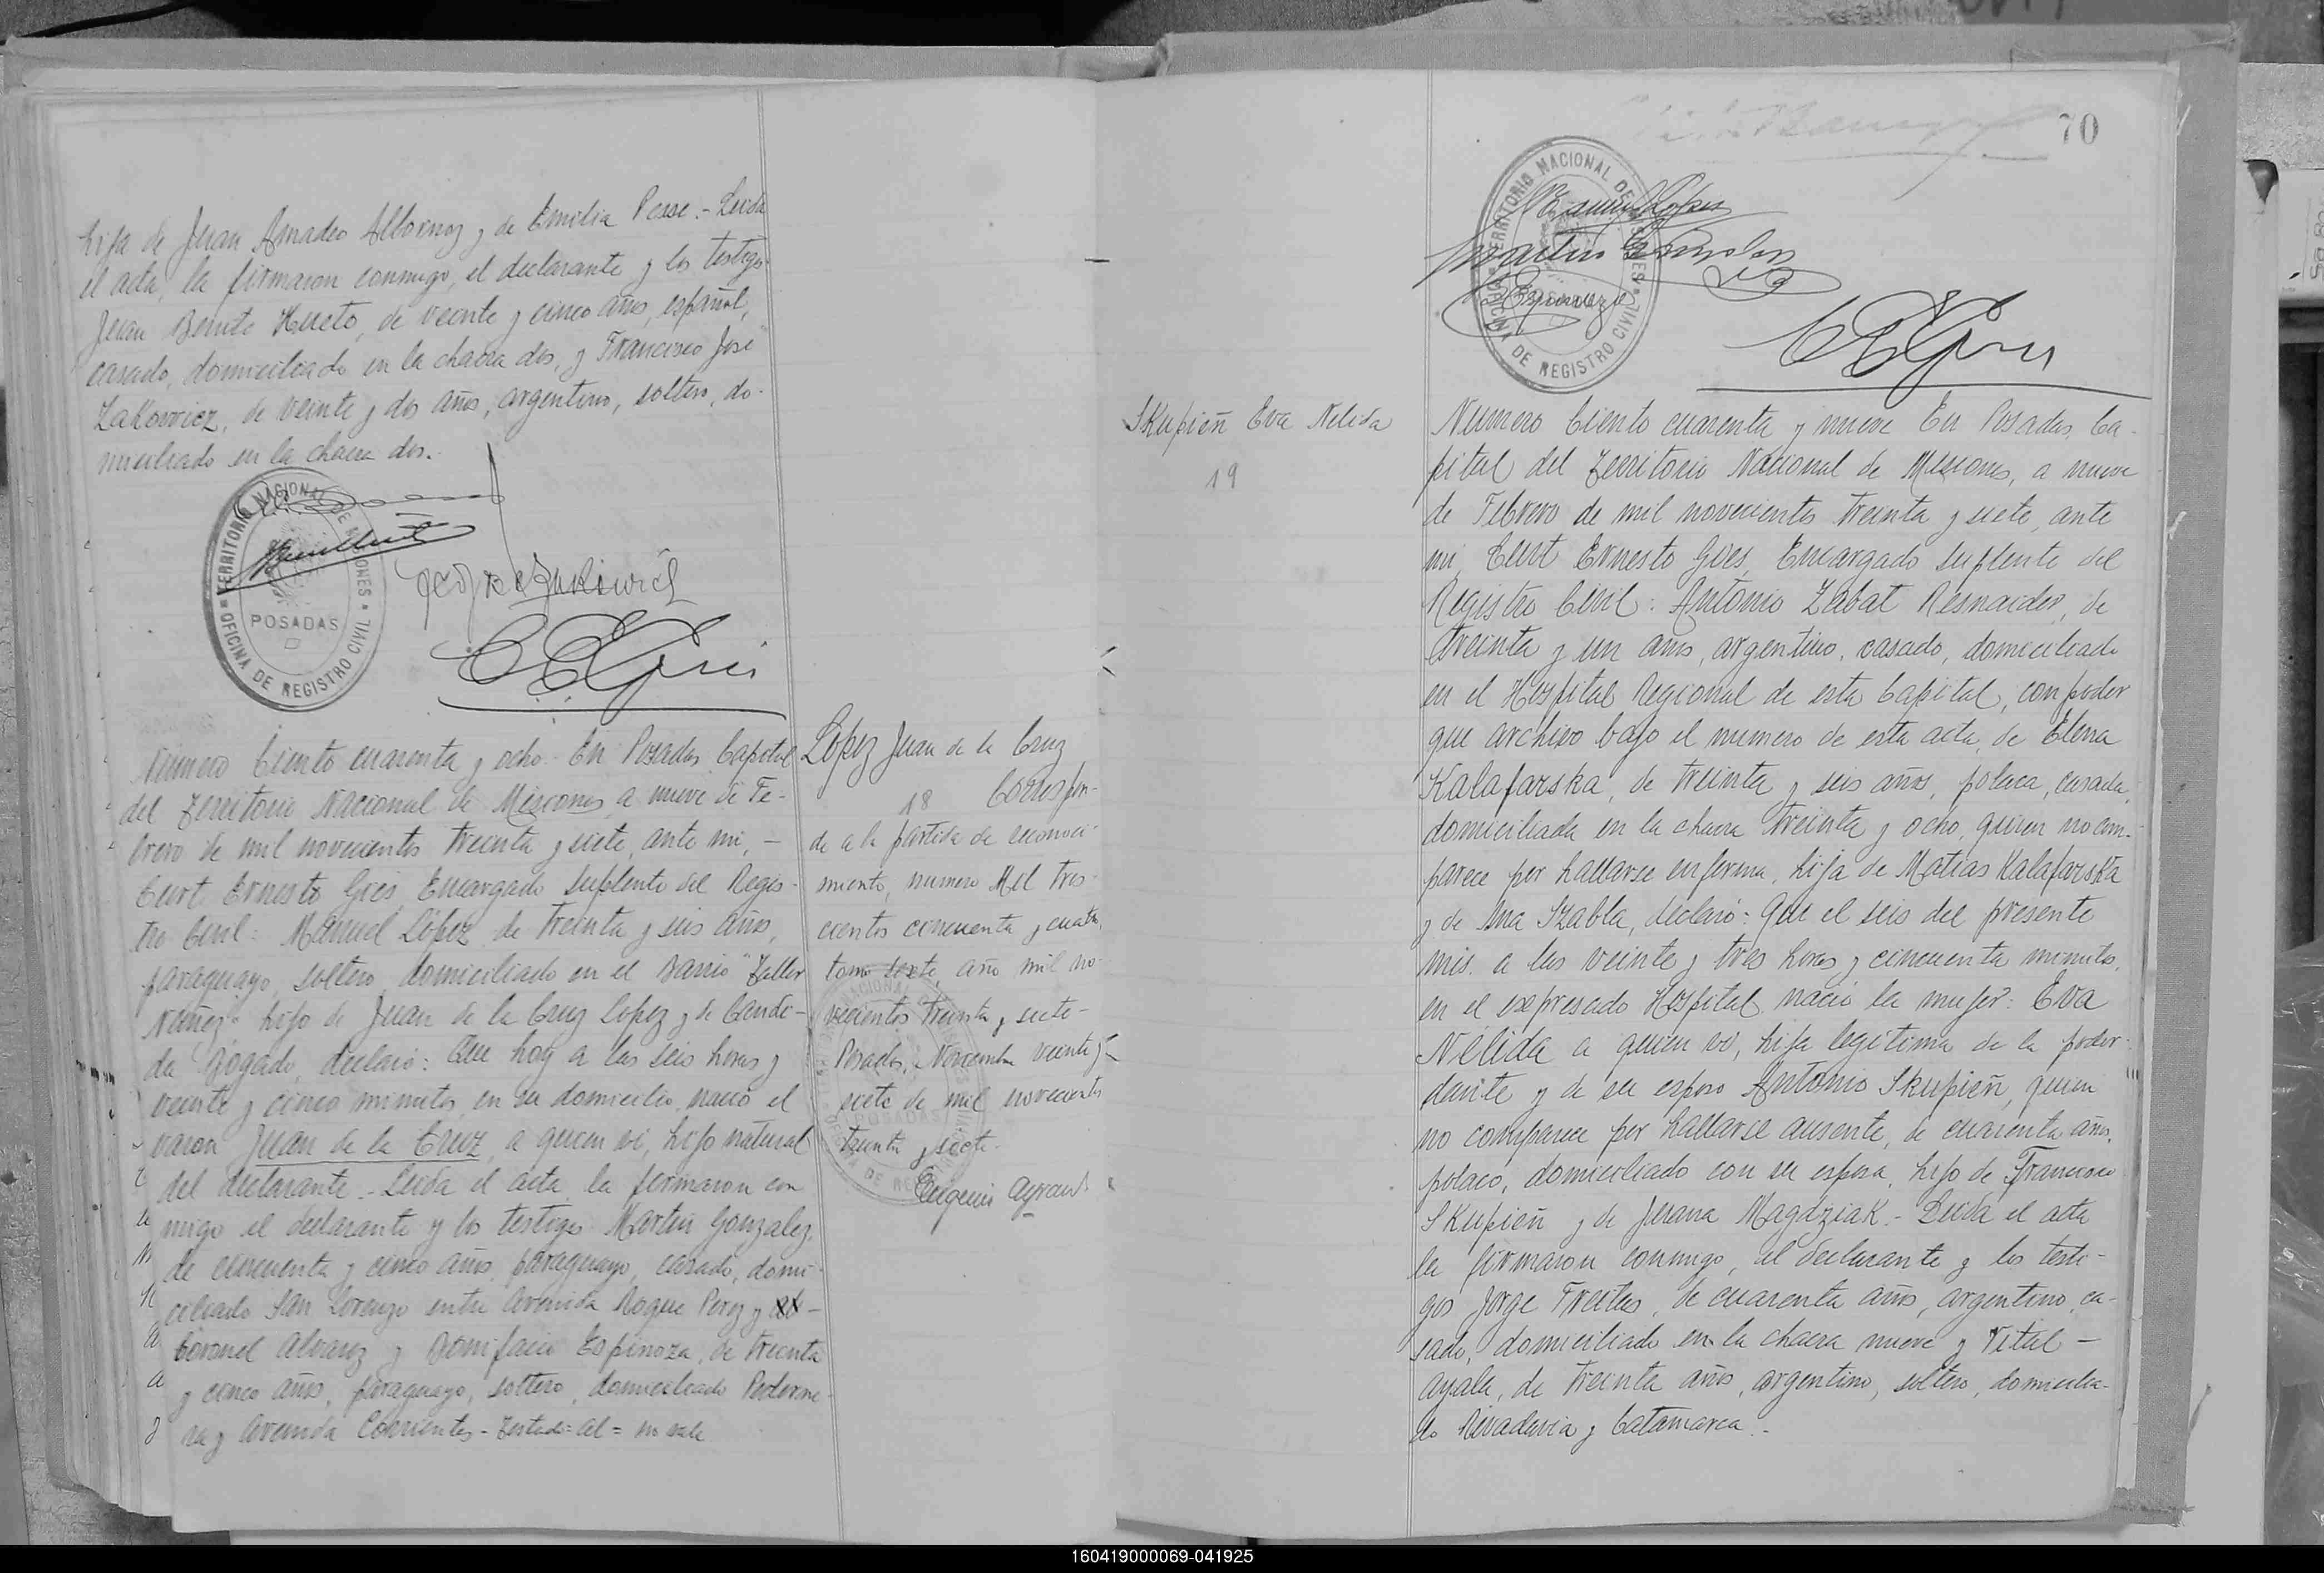 hija de Juan Amadeo Albornoz y de Emilia Posse.- Leida
el acta, la firmaron conmigo, el declarante y los testigos
Juan Benito Hueto, de veinte y cinco años, español,
casado, domiciliado en la chacra dos, y Francisco José
Zakowicz, de veinte y dos años, argentino, soltero, do-
miciliado en la chacra dos.-
TERRITORIO NACIONAL DE MISIONES
POSADAS
OFICINA DE REGISTRO CIVIL
Número Ciento cuarenta y ocho. En Posadas Capital
del Territorio Nacional de Misiones a nueve de Fe-
brero de mil novecientos treinta y siete, ante mi, -
Curt Ernesto Gries, Encargado Suplente del Regis-
tro Civil: Manuel López, de treinta y seis años,
paraguayo, soltero, domiciliado en el barrio "Taller
Nuñez" hijo de Juan de la Cruz López y de Candi-
da Gogado, declaró: Que hoy a las seis horas y
veinte y cinco minutos, en su domicilio, nació el
varon Juan de la Cruz, a quien vi, hijo natural
del declarante.- Leida el acta, la firmaron con
migo el declarante y los testigos Martin Gonzalez,
de cincuenta y cinco años, paraguayo, casado, domi-
ciliado San Lorenzo entre Avenida Roque Perez y al -
Coronel Alvarez y Bonifacio Espinoza, de treinta
y cinco años, paraguayo, soltero, domiciliado Pederne-
ra y Avenida Corrientes - Testado= al = no vale
López Juan de la Cruz
18 Correspon-
de a la partida de reconoci-
miento, numero Mil tres-
cientos cincuenta y cuatro,
tomo sexto, año mil no-
vecientos treinta y siete-
Posadas, Noviembre veinte y
siete de mil novecientos
treinta y siete.
70
TERRITORIO NACIONAL DE MISIONES
POSADAS
OFICINA DE REGISTRO CIVIL
Ramon López
Martin Gonzalez
Espinoza
Skupień Eva Nelida
19
Numero Ciento cuarenta y nueve En Posadas, Ca-
pital del Territorio Nacional de Misiones, a nueve
de Febrero de mil novecientos treinta y siete, ante
mi, Curt Ernesto Gries, Encargado Suplente del
Registro Civil: Antonio Zabat Resnaider, de
treinta y un años, argentino, casado, domiciliado
en el Hospital Regional de esta Capital, con poder
que archivo bajo el numero de esta acta, de Elena
Kalafarska, de treinta y seis años, polaca, casada,
domiciliada en la chacra treinta y ocho, quien no com-
parece por hallarse enferma, hija de Matias Kalafarska
y de Ana Szabla, declaró: Que el seis del presente
mes, a las veinte y tres horas y cincuenta minutos,
en el expresado Hospital, nació la mujer: Eva
Nélida a quien vi, hija legitima de la poder-
dante y de su esposo Antonio Skupień, quien
no comparece por hallarse ausente, de cuarenta años,
polaco, domiciliado con su esposa, hijo de Francisco
Skupień y de Juana Magdziak.- Leida el acta
la firmaron conmigo, el declarante y los testi-
gos Jorge Freites, de cuarenta años, argentino, ca-
sado, domiciliado en la chacra nueve y Vital -
Ayala, de treinta años, argentino, soltero, domicilia-
do Rivadavia y Catamarca.-
160419000069-041925